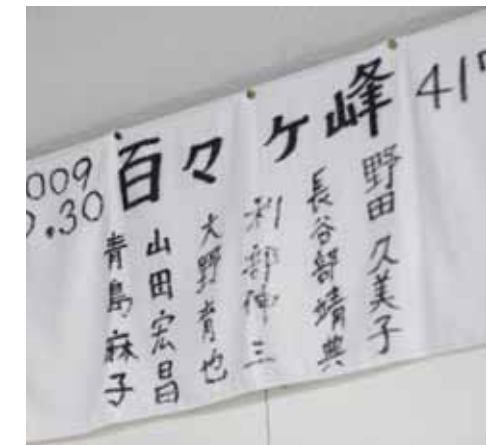 009
.30
百々ケ峰
417
野田久美子
長谷部靖典
刹部伸三
大野育也
山田宏昌
青島麻子